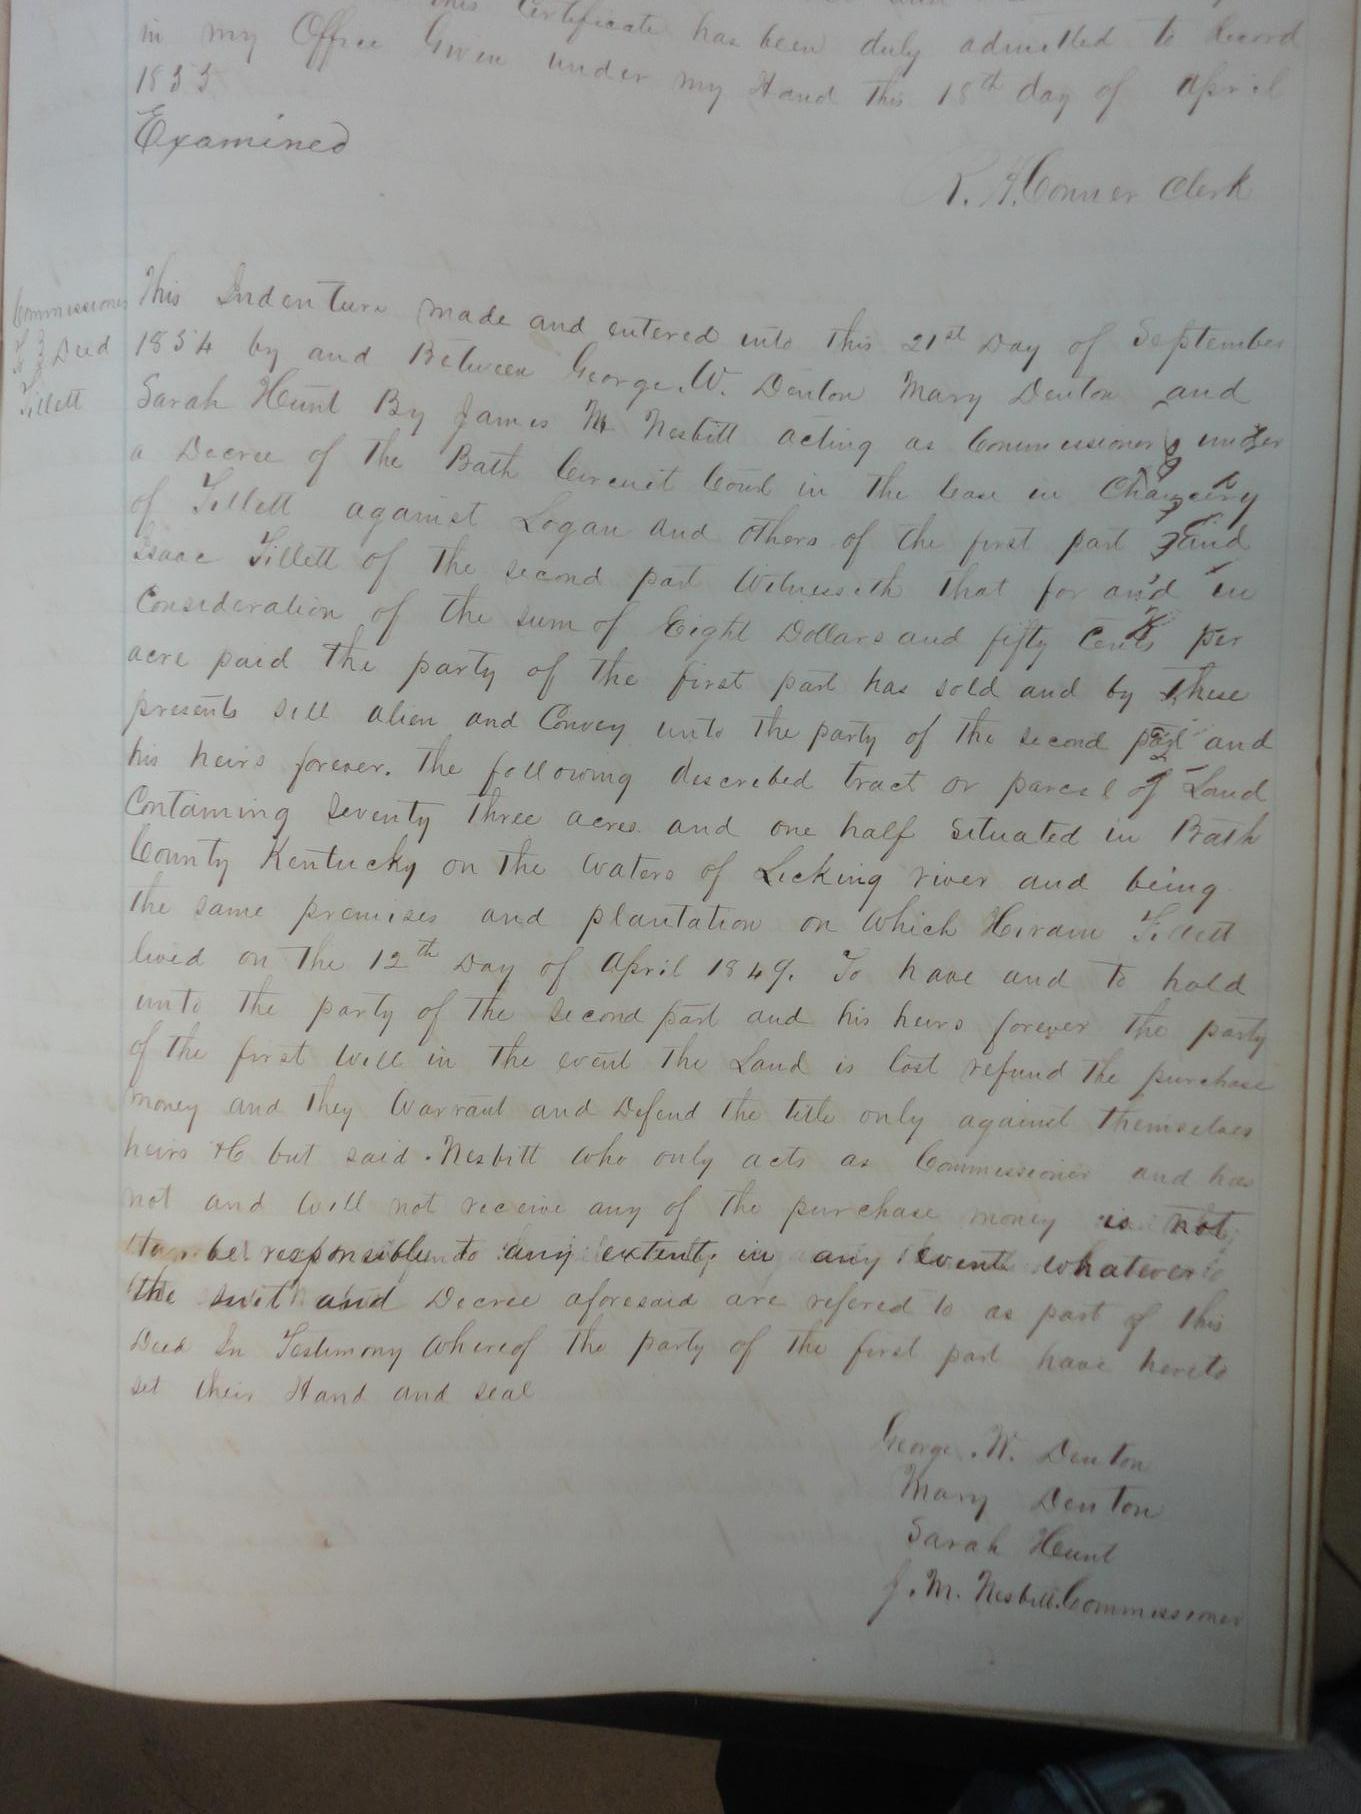 this Certificate has been
in my Office Given under my Hand this 18th day of April
has been duly admitted to Record
1855
Examined
R. H. Conner Clerk
Commissioner
To } Deed
Tillett
This Indenture made and entered into this 21st Day of September
1854 by and Between George. W. Denton Mary Denton and
Sarah Hunt By James M Nesbitt acting as Commissioner under
a Decree of the Bath Circuit Court in the Case in Chancery
of Tillett against Logan and others of the first part and
Isaac Tillett of the second part Witnesseth that for and in
Consideration of the sum of Eight Dollars and fifty Cents per
acre paid the party of the first part has sold and by these
presents sell alien and Convey unto the party of the second part and
his heirs forever. the following described tract or parcel of Land
Containing Seventy three acres and one half Situated in Bath
County Kentucky on the Waters of Licking river and being
the same premises and plantation on Which Hiram Tillett
lived on the 12th Day of April 1849. To have and to hold
unto the party of the second part and his heirs forever the party
of the first Will in the event the Land is lost refund the purchase
money and they Warrant and Defend the title only against themselves
heirs &C but said. Nesbitt Who only acts as Commissioner and has
not and Will not receive any of the purchase money is not
to be responsible to any extent in any event whatever
the suit and Decree aforesaid are refered to as part of this
Deed In Testimony Whereof the party of the first part have hereto
set their Hand and seal
George. W. Denton
Mary Denton
Sarah Hunt
J. M. Nesbitt. Commissioner